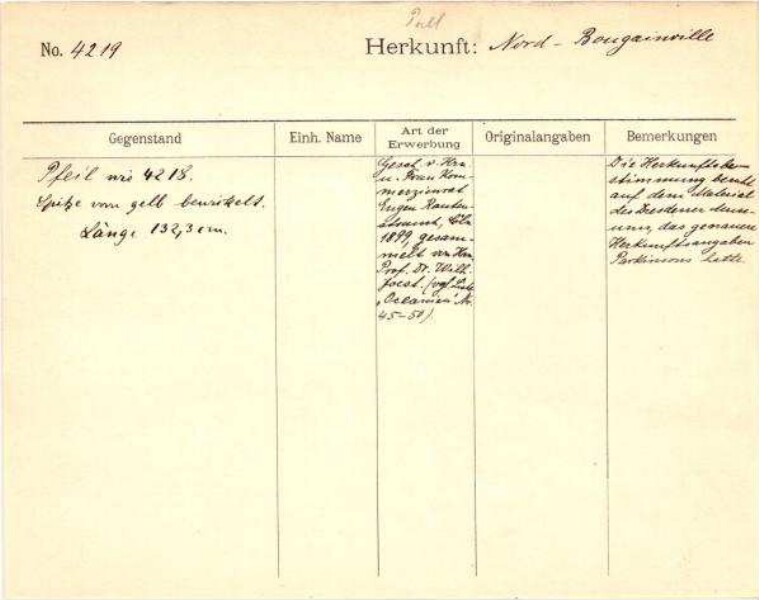 No. 4219
Herkunft: Nord - Bougainville
Gegenstand
Einh. Name
Art der Erwerbung
Originalangaben
Bemerkungen
Pfeil wie 4218.
Spitze von gelb bewickelt.
Länge 132,3 cm.
Gesch. v. Hrn
u. Frau Kom-
merzienrat
Eugen Rauten-
strauch, Cöln
1899, gesam-
melt von Hrn
Prof. Dr. Wilh.
Joest. (vgl. Liste
"Oceanien" Nr.
45-50).
Die Herkunftsbe-
stimmung beruht
auf dem Material
des Dresdener Muse-
ums, das genauere
Herkunftsangaben
Parkinsons hatte